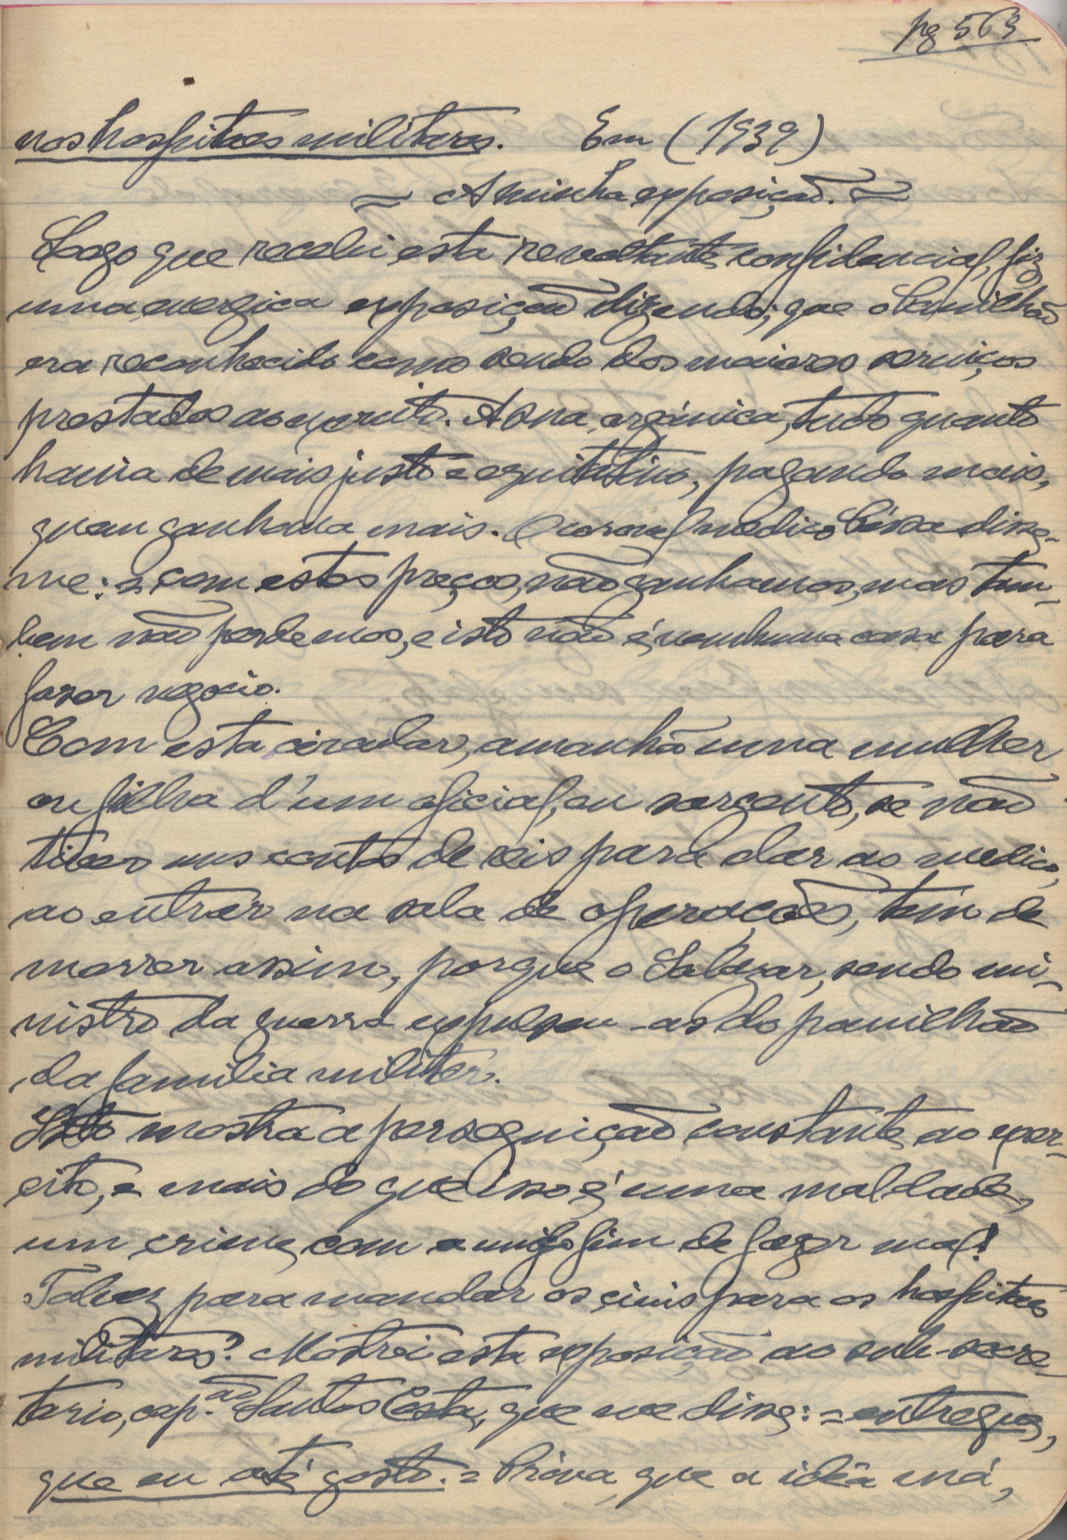 pg 563
nos hospitaes militares. Em (1939)
= A minha exposição. =
Logo que recebi esta revoltante confidencial, fiz
uma energica exposição dizendo; que o Pavilhão
era reconhecido como sendo dos maiores serviços
prestados ao exercito. A sua orgánica, tudo quanto
havia de mais justo e equitativo, pagando mais,
quem ganhava mais. O coronel medico disse-
me: = com estes preços, não ganhamos, mas tam-
bem não perdemos, e isto não é nenhuma casa para
faser negocio.
Com esta circular, amanhã uma mulher
ou filha d'um oficial, ou sargento, se não
tiver uns contos de reis para dar ao medico,
ao entrar na sala de operações, tem de
morrer assim, porque o Salazar, sendo mi-
nistro da guerra expulsou-as do pavilhão
da familia militar.
Isto mostra a perseguição constante ao exer-
cito, e mais do que isso é uma maldade,
um crime, com o unico fim de fazer mal!
Talvez para mandar os civis para os hospitaes
militares? Mostrei esta exposição ao sub-secre-
tario, cap.ão Santos Costa, que me disse: = entregue,
que eu até gosto. = Prova, que a idêa má,